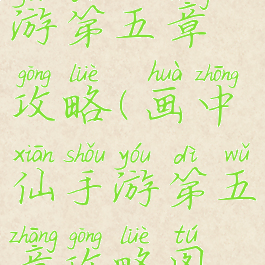 游第五章
gōng lüè huà zhōng
攻略(画中
xiān shǒu yóu dì wǔ
仙手游第五
zhāng gōng lüè tú
章攻略图